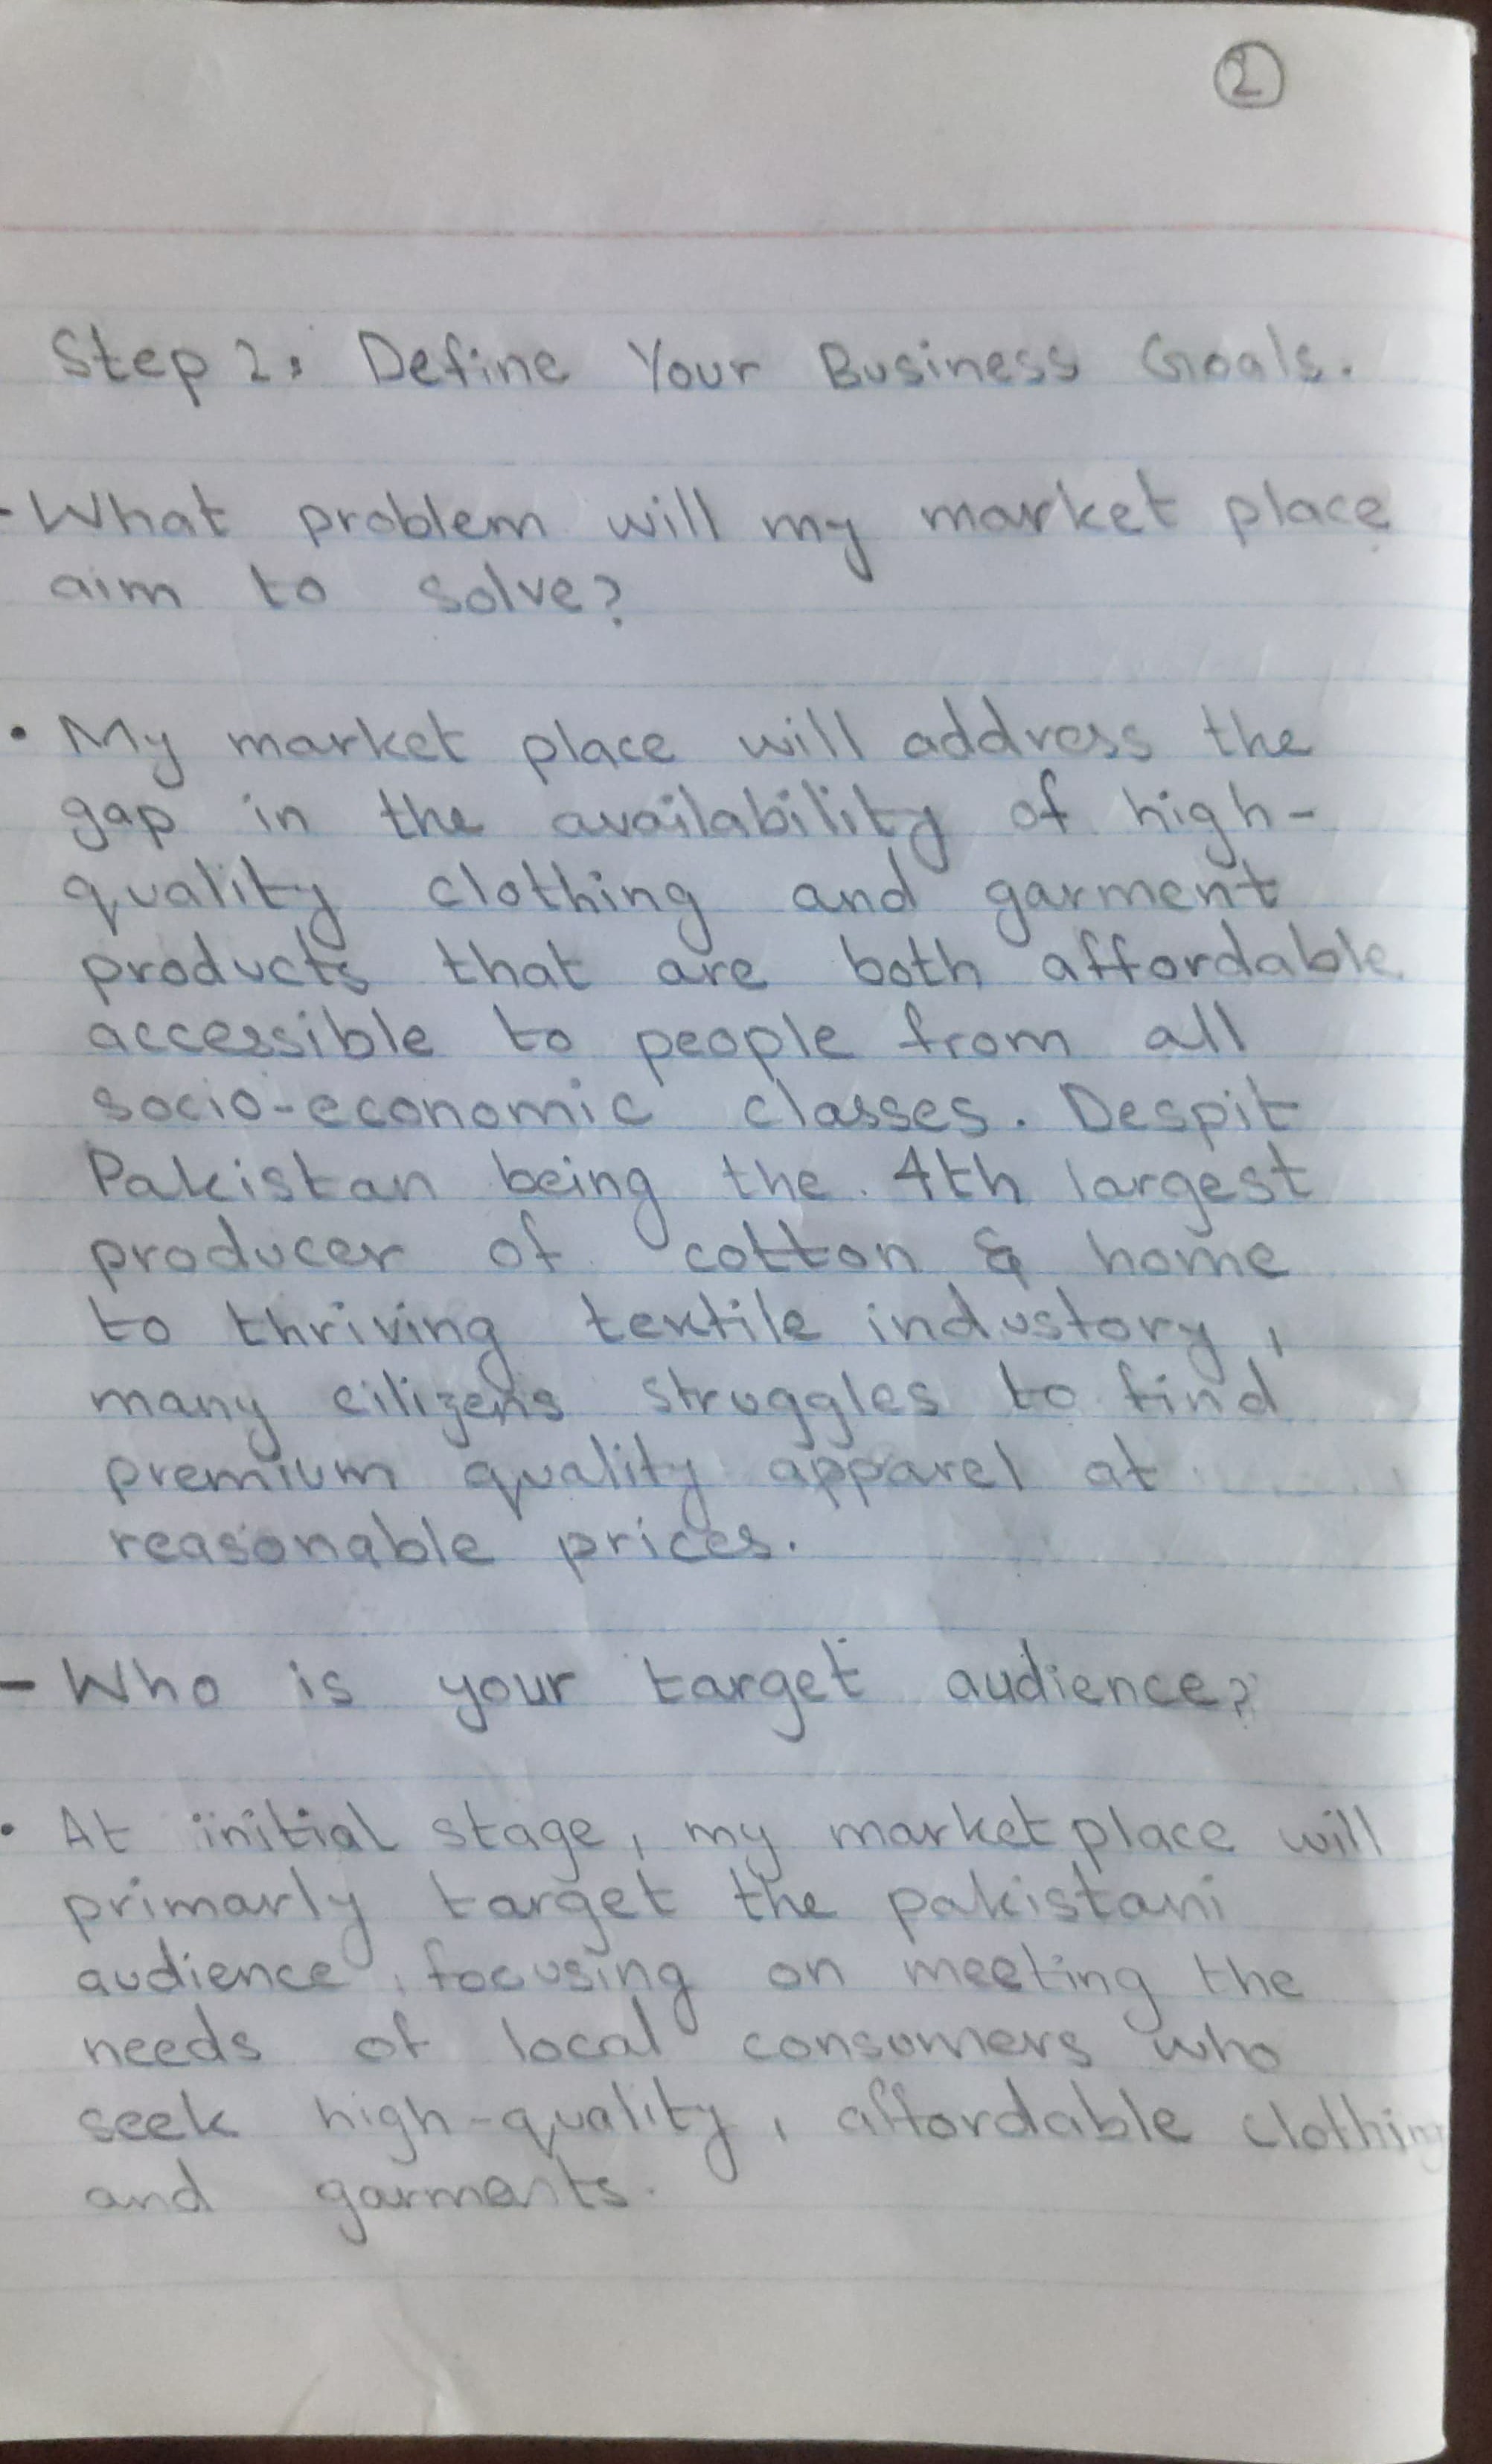 2
Step 2: Define Your Business Goals.
- What problem will my market place
aim to solve?
• My market place will address the
gap in the availability of high-
quality clothing and garment
products that are both affordable
accessible to people from all
socio-economic classes. Despit
Pakistan being the 4th largest
producer of cotton & home
to thriving textile industory,
many citizens struggles to find
premium quality apparel at
reasonable prices.
- Who is your target audience?
• At initial stage, my marketplace will
primarly target the pakistani
audience, focusing on meeting the
needs of local consumers who
seek high-quality, affordable clothing
and garments.